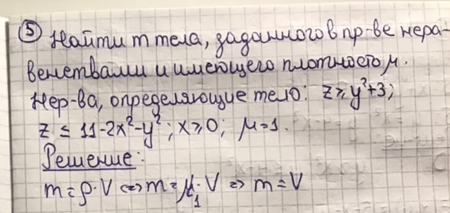 ⑤ Найти m тела, заданного в пр-ве нера-
венствами и имеющего плотность μ.
Нер-ва, определяющие тело: z ≥ y²+3;
z ≤ 11-2x²-y²; x ≥ 0; μ=1.
Решение:
m = ρ·V <=> m = μ·V => m = V
1